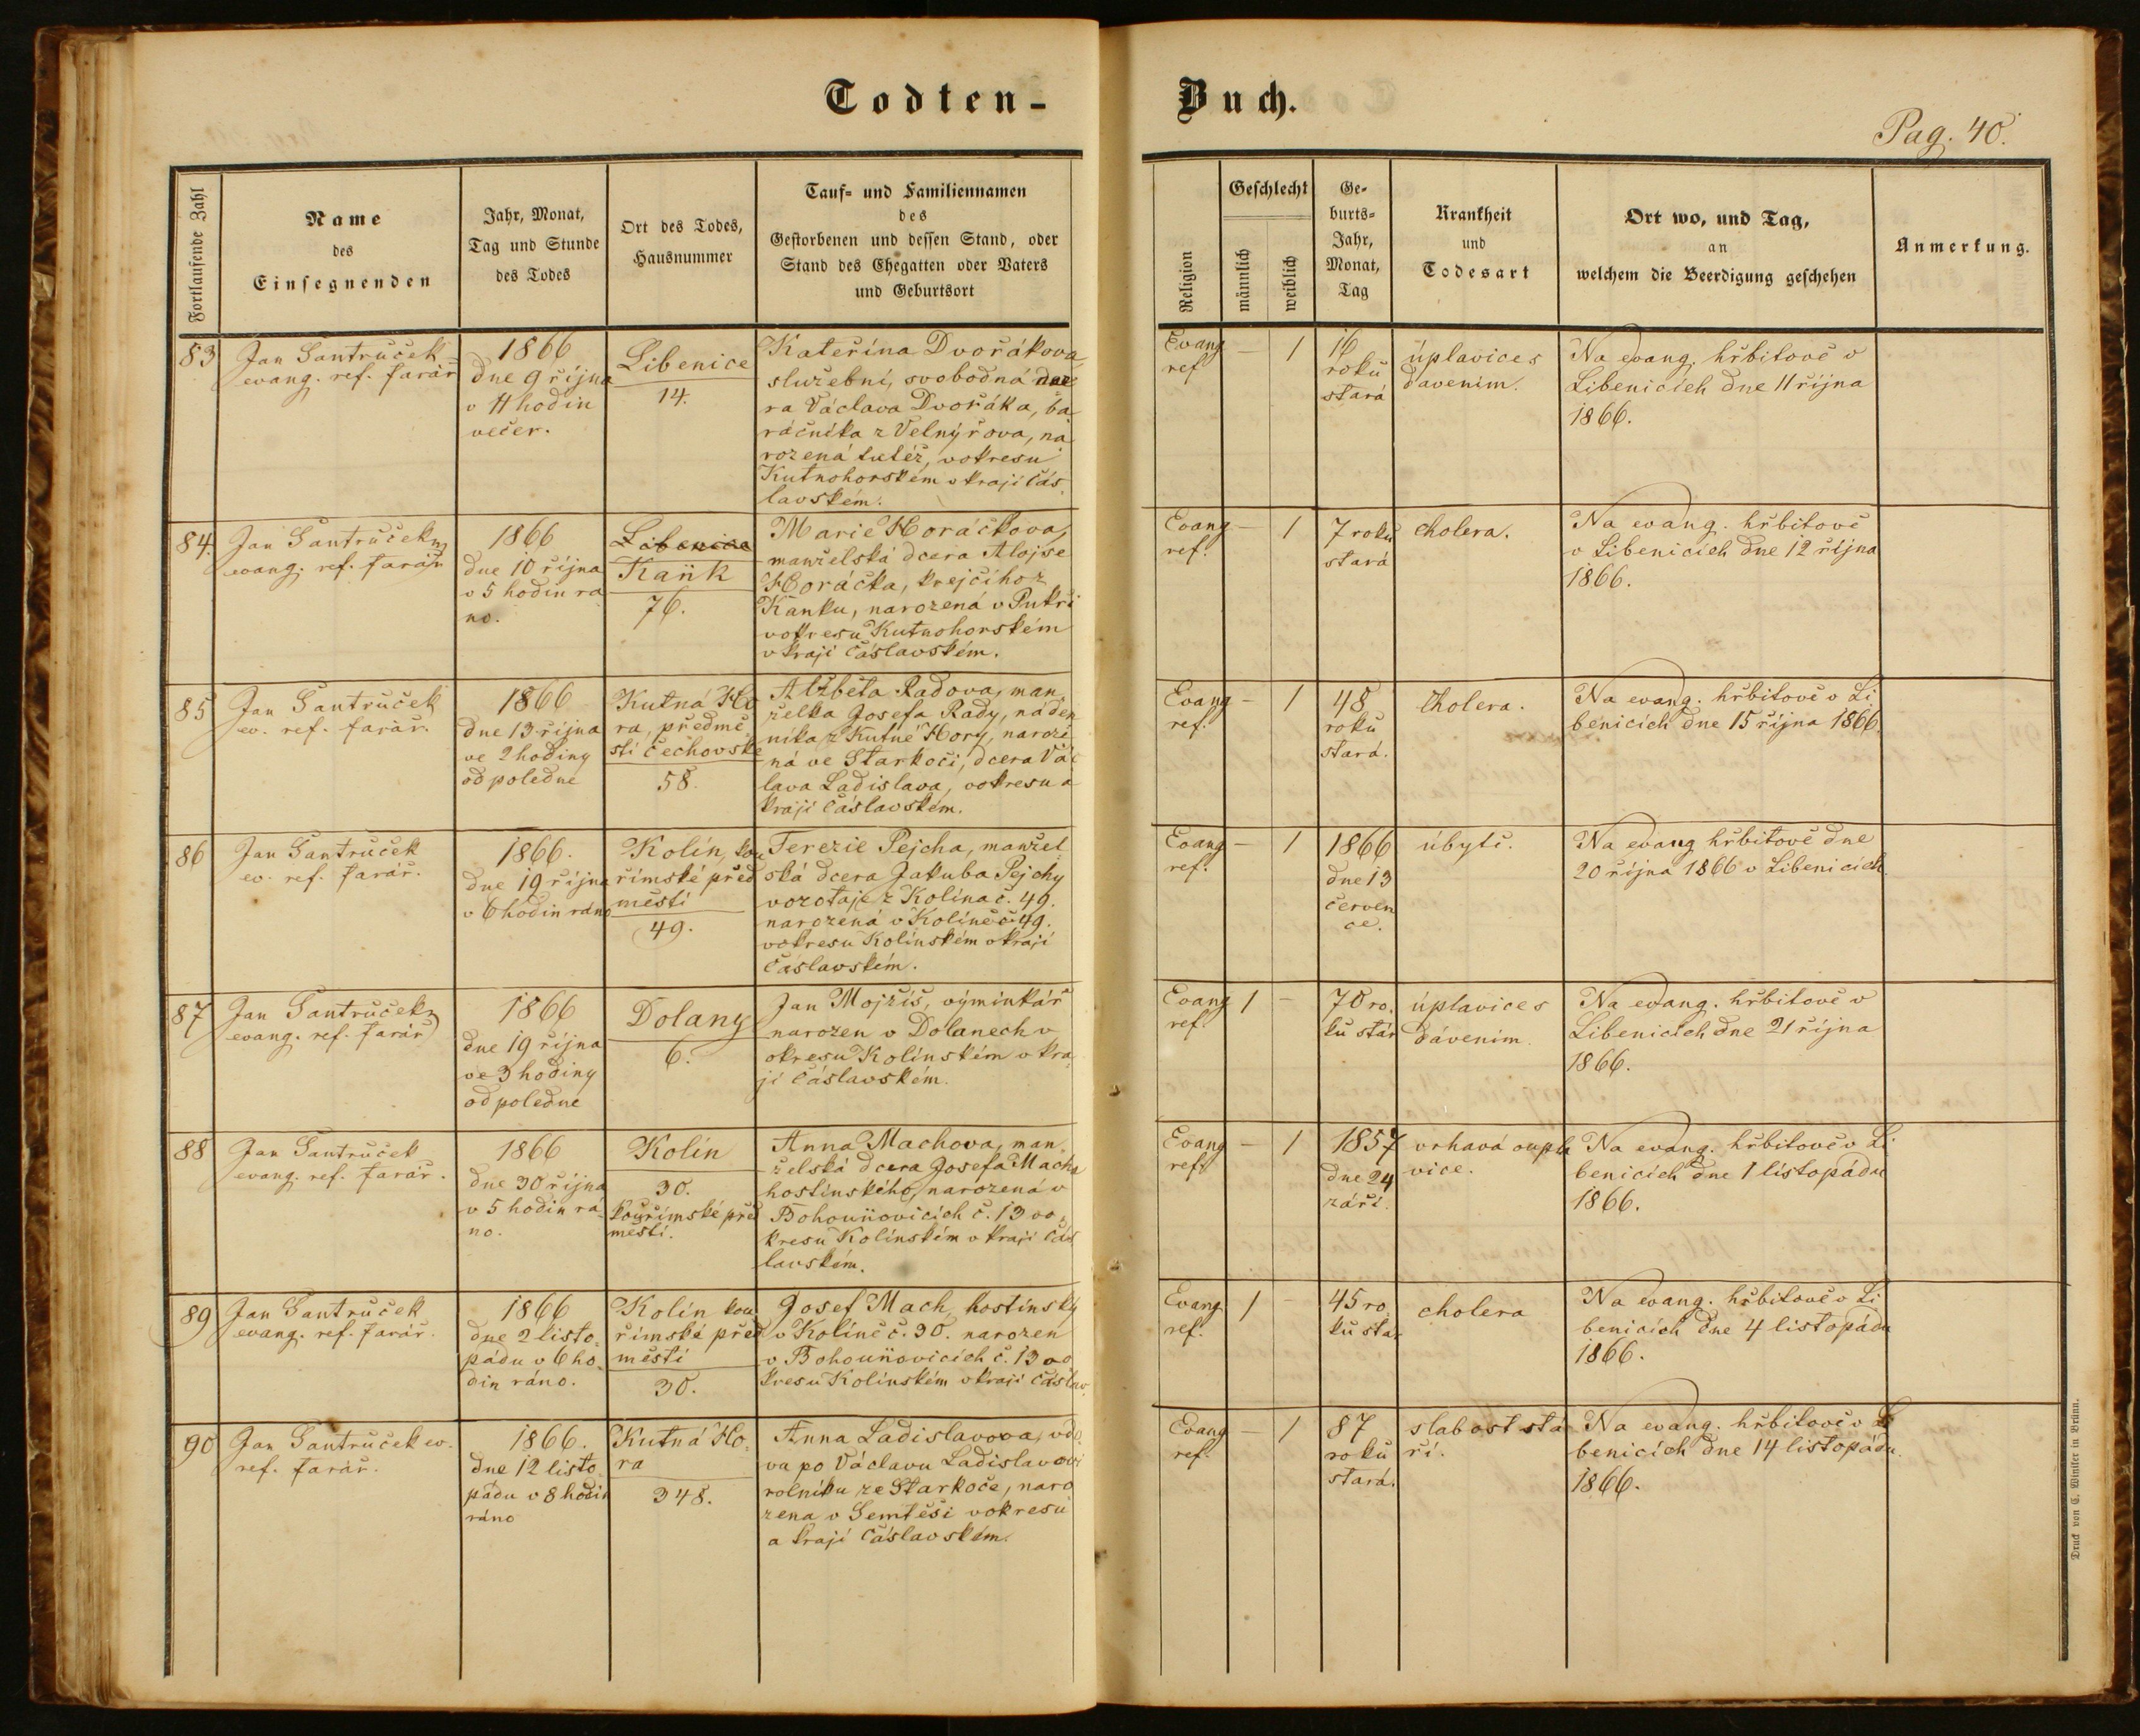 Todten-
Buch.
Pag. 40.
Fortlaufende Zahl
Name
des
Einsegnenden
Jahr, Monat,
Tag und Stunde
des Todes
Ort des Todes,
Hausnummer
Tauf- und Familiennamen
des
Gestorbenen und dessen Stand, oder
Stand des Ehegatten oder Vaters
und Geburtsort
Religion
Geschlecht
männlich
weiblich
Ge-
burts-
Jahr,
Monat,
Tag
Krankheit
und
Todesart
Ort wo, und Tag,
an
welchem die Beerdigung geschehen
Anmerkung.
83
Jan Šantrůček
evang. ref. farář
1866
dne 9 října
v 11 hodin
večer.
Libenice
14.
Kateřina Dvořákova
služební, svobodná dce
ra Václava Dvořáka, ba
ráčníka z Velnýřova, na
rozená tutéž, v okresu
Kutnohorském v kraji Čás
lavském.
Evang
ref
— 1
16
roků
stará
úplavice s
davením.
Na evang. hřbitově v
Libenicích dne 11 října
1866.
84.
Jan Šantrůček
evang. ref. farář
1866
dne 10 října
v 5 hodin rá
no.
Libenice
Kaňk
76.
Marie Horáčkova,
manželská dcera Alojse
Horáčka, krejčího z
Kaňku, narozená v
v okresu Kutnohorském
v kraji Čáslavském.
Evang
ref.
— 1
7 roků
stará
cholera.
Na evang. hřbitově
v Libenicích dne 12 října
1866.
85
Jan Šantrůček
ev. ref. farář.
1866
dne 13 října
ve 2 hodiny
odpoledne
Kutná Ho
ra, předmě
stí Čechovské
58.
Alžběta Radova, man
želka Josefa Rady, náden
níka z Kutné Hory, naroze
ná ve Starkoči, dcera Vác
lava Ladislava, v okresu a
kraji Čáslavském.
Evang
ref.
— 1
48
roků
stará.
cholera.
Na evang. hřbitově v Li
benicích dne 15 října 1866.
86
Jan Šantrůček
ev. ref. farář.
1866.
dne 19 října
v 6 hodin ráno
Kolín, kou
římské před
městí
49.
Terezie Pejcha, manžel
ská dcera Jakuba Pejchy
vozotaje z Kolína č. 49.
narozená v Kolíně č. 49.
v okresu Kolínském v kraji
Čáslavském.
Evang
ref.
— 1
1866
dne 13
červen
ce.
úbytě.
Na evang hřbitově dne
20 října 1866 v Libenicích
87
Jan Šantrůček
evang. ref. farář
1866
dne 19 října
ve 3 hodiny
odpoledne
Dolany
6.
Jan Mojžíš, výminkář
narozen v Dolanech v
okresu Kolínském v kra
ji Čáslavském.
Evang
ref.
1 —
70 ro
ků stár
úplavice s
dávením.
Na evang. hřbitově v
Libenicích dne 21 října
1866.
88
Jan Šantrůček
evang. ref. farář.
1866
dne 30 října
v 5 hodin rá
no.
Kolín
30.
kouřimské před
městí.
Anna Machova, man
želská dcera Josefa Macha
hostinského, narozená v
Bohouňovicích č. 13 v o
kresu Kolínském v kraji Čás
lavském.
Evang
ref.
— 1
1857
dne 24
září.
vrhavá oupla
vice.
Na evang. hřbitově v Li
benicích dne 1 listopádu
1866.
89
Jan Šantrůček
evang. ref. farář.
1866
dne 2 listo
pádu v 6 ho
din ráno.
Kolín kou
římské před
městí
30.
Josef Mach, hostinský
v Kolíně č. 30. narozen
v Bohouňovicích č. 13 v o
kresu Kolínském v kraji Čáslav.
Evang
ref.
1 —
45 ro
ků stár
cholera
Na evang. hřbitově v Li
benicích dne 4 listopádu
1866.
90
Jan Šantrůček ev.
ref. farář.
1866.
dne 12 listo
pádu v 8 hodin
ráno
Kutná Ho
ra
348.
Anna Ladislavova, vdo
va po Václavu Ladislavovi
rolníku ze Starkoče, naro
zena v Semtěši v okresu
a kraji Čáslavském.
Evang
ref.
— 1
87
roků
stará.
slabost stá
ří.
Na evang. hřbitově v Li
benicích dne 14 listopádu
1866.
Druck von C. Winiker in Brünn.